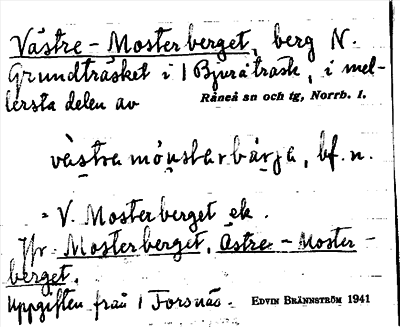 Västre-Mosterberget, berg N.
Grundträsket i 1 Bjuråträsk, i mel-
lersta delen av Råneå sn och tg, Norrb. l.
västra mönstarbärja, bf. n.
= V. Mosterberget ek.
Jfr Mosterberget, Östre-Moster-
berget.
Uppgiften från 1 Forsnäs. EDVIN BRÄNNSTRÖM 1941